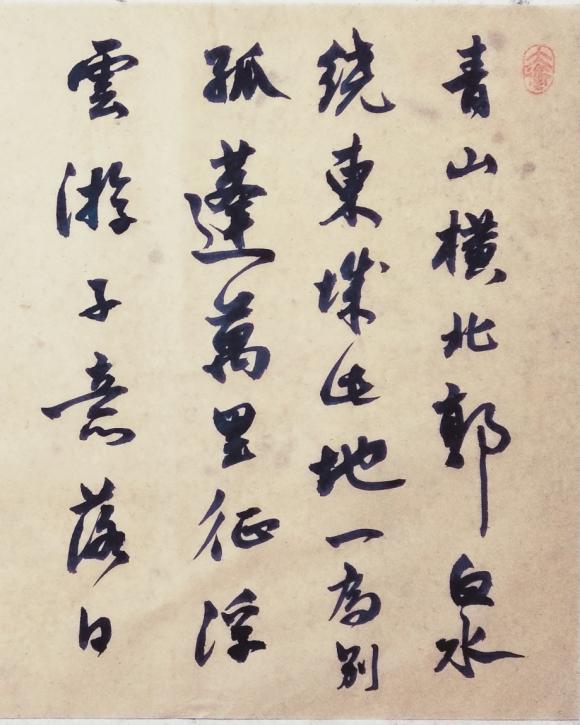 青山橫北郭白水
繞東城此地一為別
孤蓬萬里征浮
雲游子意落日